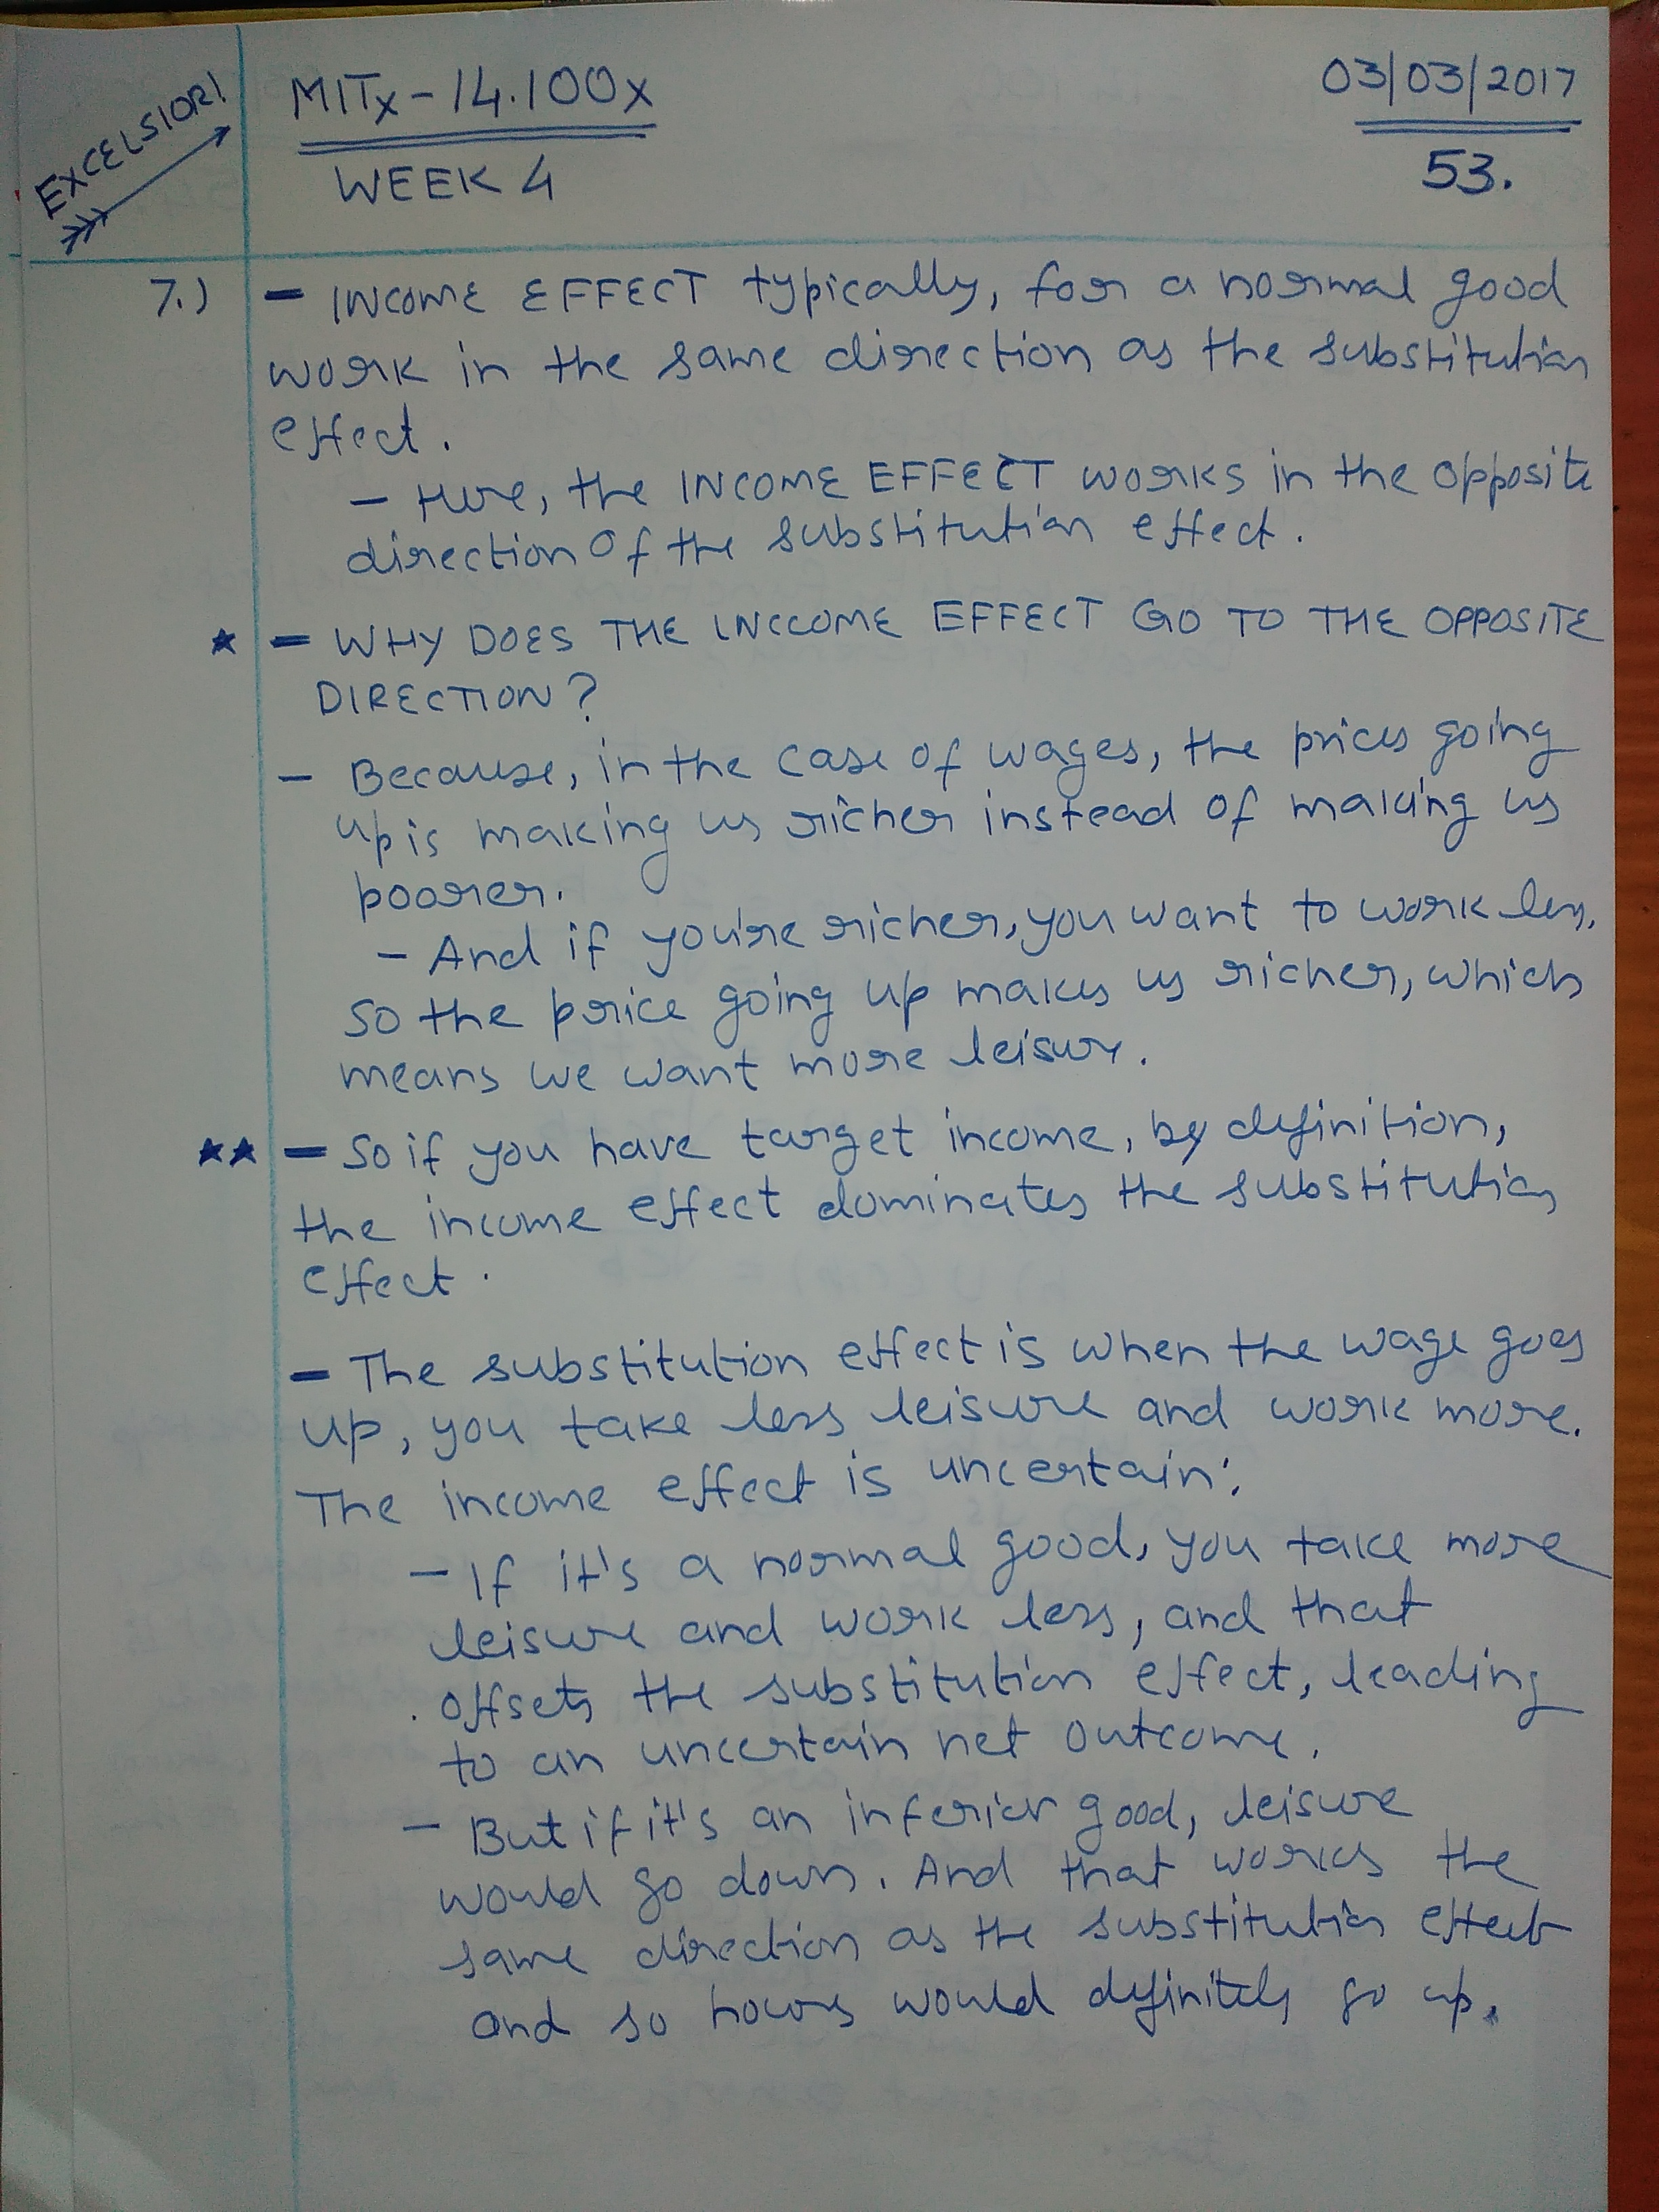 EXCELSIOR!
MITx - 14.100x
WEEK 4
03/03/2017
53.
7.) - INCOME EFFECT typically, for a normal good
work in the same direction as the substitution
effect.
- Here, the INCOME EFFECT works in the opposite
direction of the substitution effect.
★ - WHY DOES THE INCCOME EFFECT GO TO THE OPPOSITE
DIRECTION?
- Because, in the case of wages, the prices going
up is making us richer instead of making us
poorer.
- And if you're richer, you want to work less,
so the price going up makes us richer, which
means we want more leisure.
★★ - So if you have target income, by definition,
the income effect dominates the substitution
effect.
- The substitution effect is when the wage goes
up, you take less leisure and work more.
The income effect is uncertain:
- If it's a normal good, you take more
leisure and work less, and that
offsets the substitution effect, leading
to an uncertain net outcome.
- But if it's an inferior good, leisure
would go down. And that works the
same direction as the substitution effect
and so hours would definitely go up.